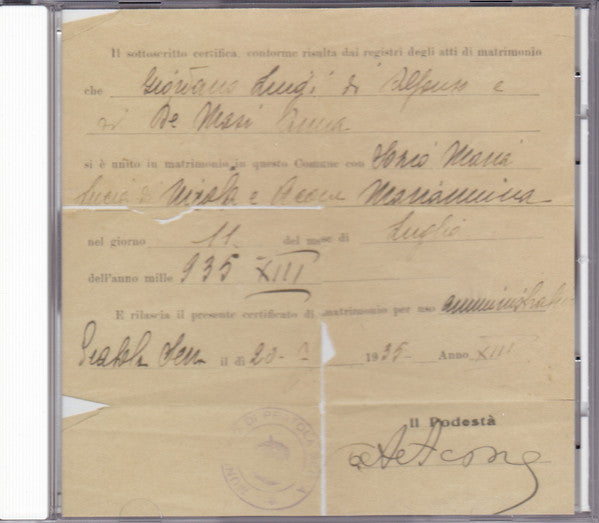 Il sottoscritto certifica, conforme risulta dai registri degli atti di matrimonio
che Giordano Luigi di Alfonso e
di De Masi Anna
si è unito in matrimonio in questo Comune con Iorio Maria
Lucia di Nicola e Mariannina
nel giorno 11 del mese di Luglio
dell'anno mille 935 XIII
E rilascia il presente certificato di matrimonio per uso amministrativo
Pratola Serra il dì 20 - 1935 - Anno XIII
Il Podestà
DI PRATOLA